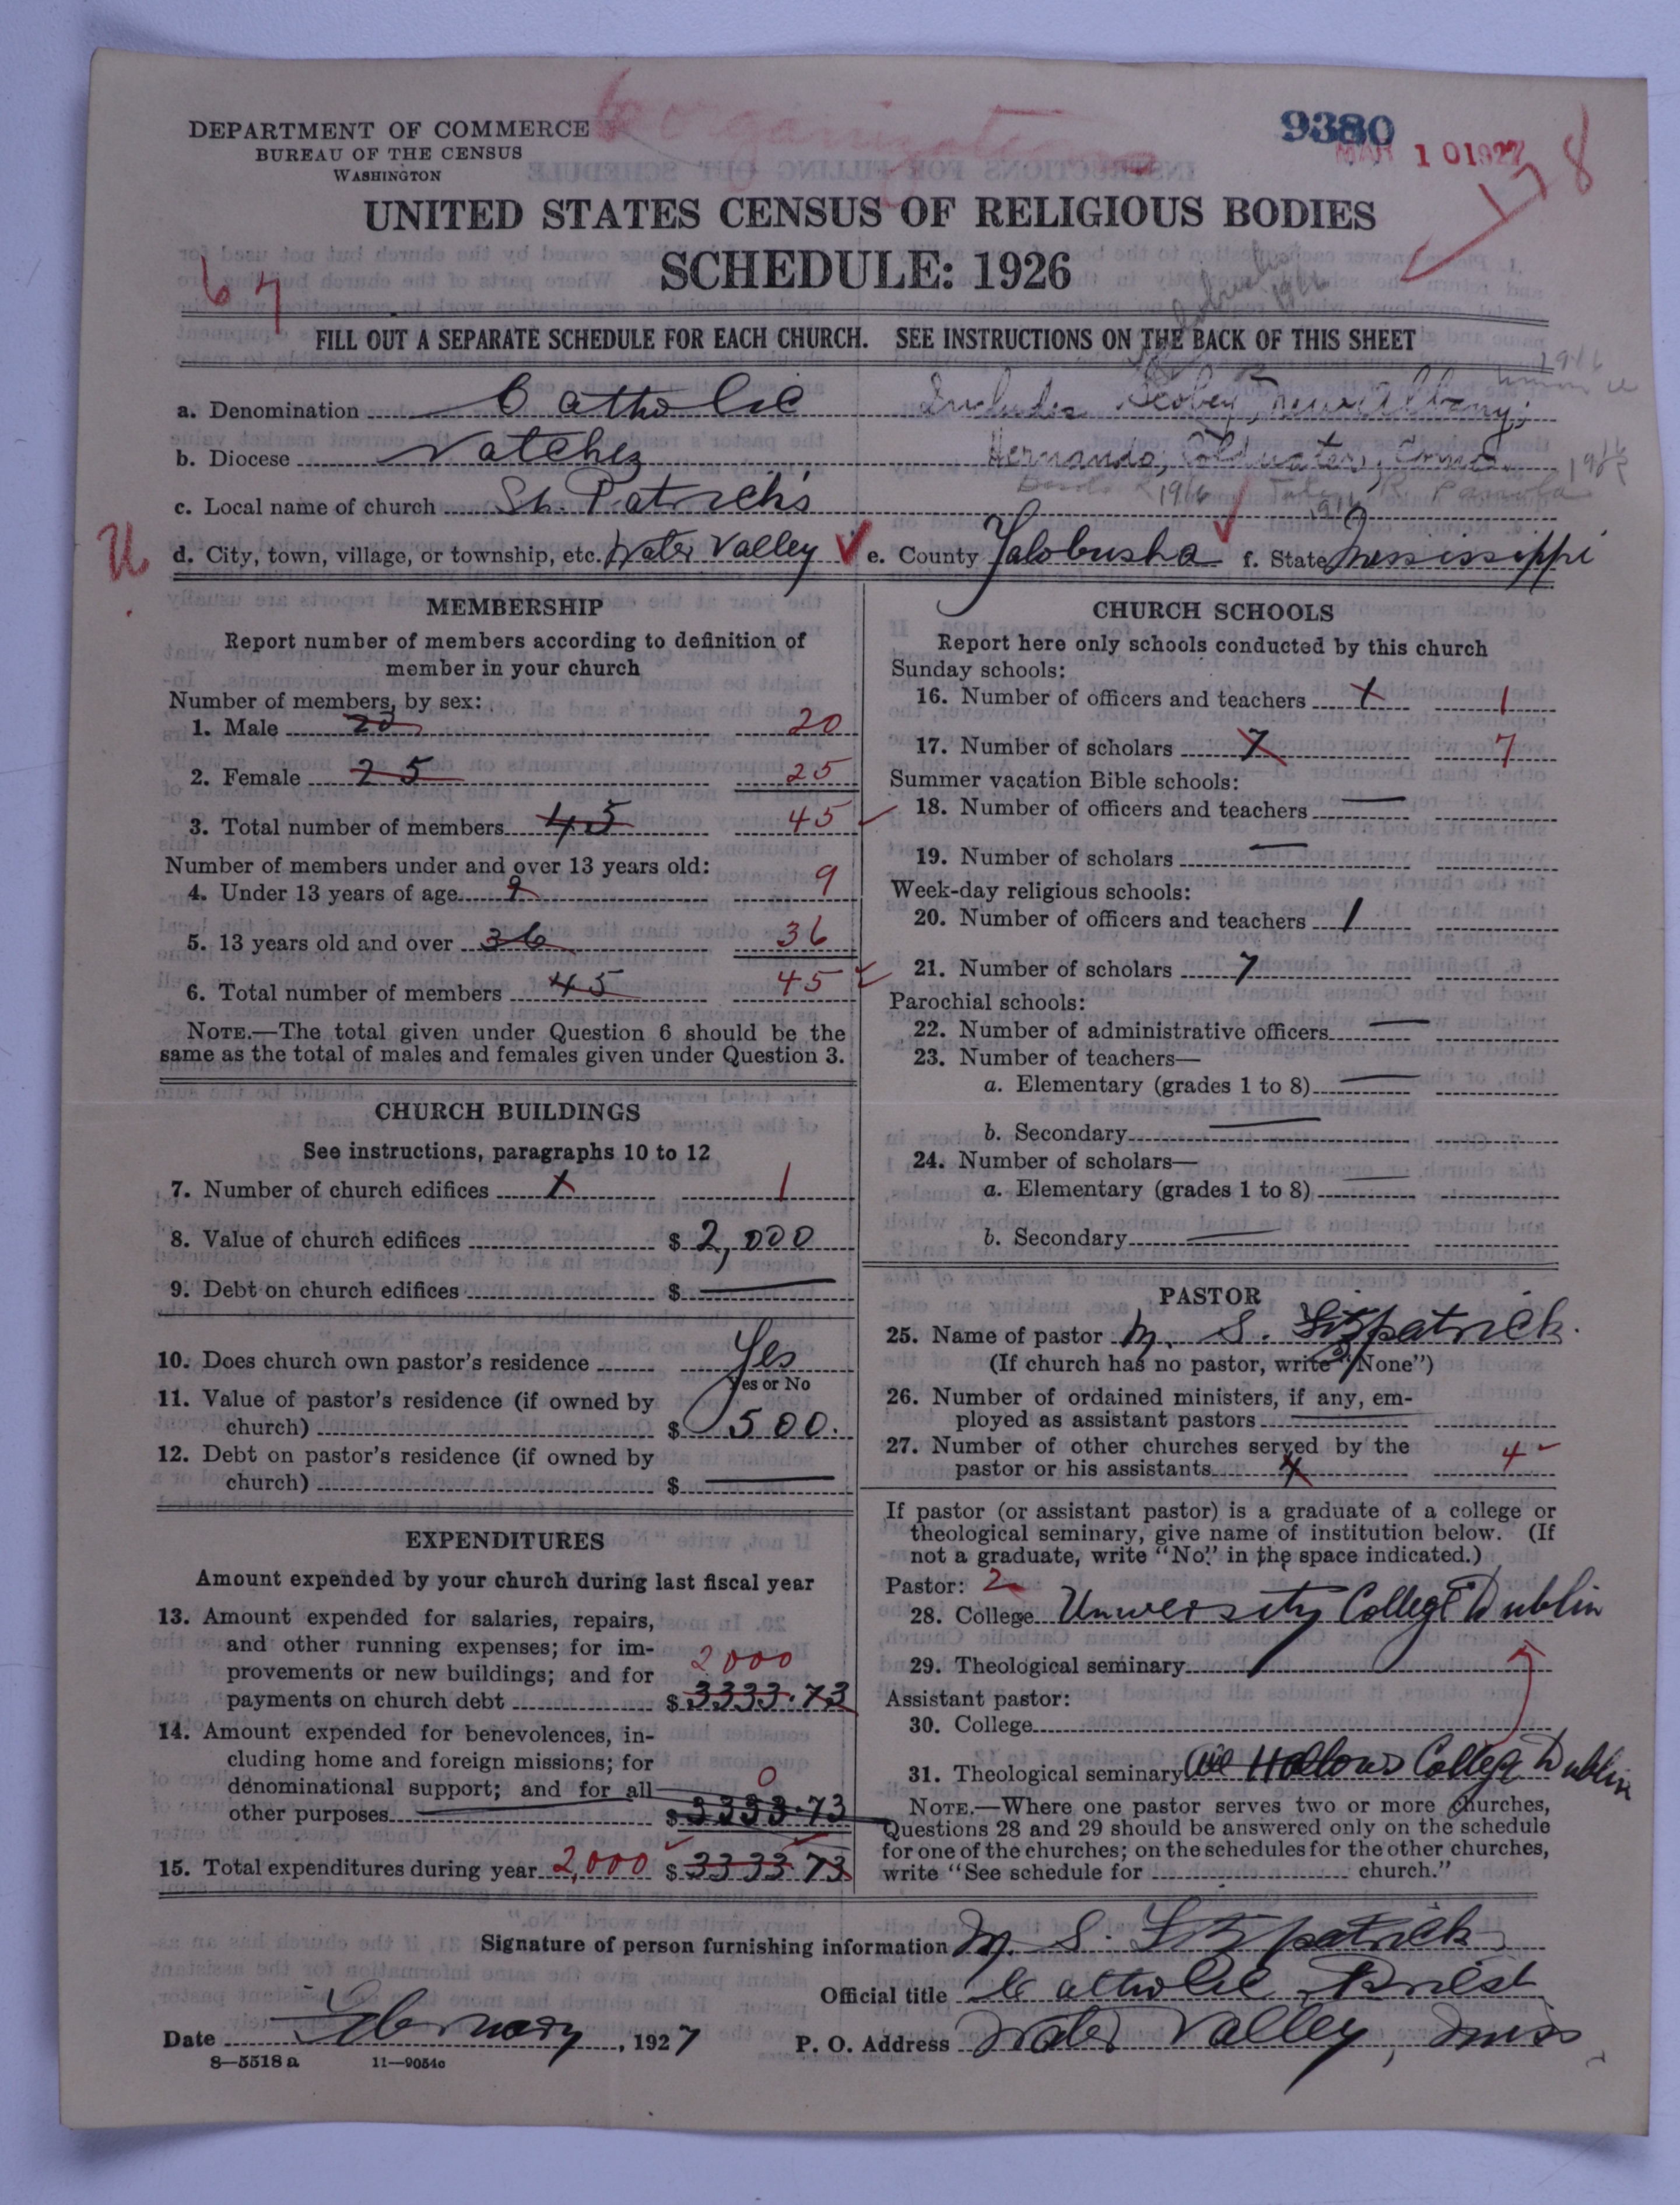 DEPARTMENT OF COMMERCE
BUREAU OF THE CENSUS
WASHINGTON
organizations
9380
MAR 10 1927
178
UNITED STATES CENSUS OF RELIGIOUS BODIES
SCHEDULE: 1926
67
FILL OUT A SEPARATE SCHEDULE FOR EACH CHURCH. SEE INSTRUCTIONS ON THE BACK OF THIS SHEET
a. Denomination Catholic Includes Scobey, New Albany,
b. Diocese Natchez Hernando, Coldwater, Como
1916
c. Local name of church St. Patrick's
U
d. City, town, village, or township, etc. Water Valley e. County Yalobusha f. State Mississippi
MEMBERSHIP
Report number of members according to definition of
member in your church
Number of members, by sex:
1. Male 20 20
2. Female 25 25
3. Total number of members 45 45
Number of members under and over 13 years old:
4. Under 13 years of age 9 9
5. 13 years old and over 36 36
6. Total number of members 45 45
NOTE.—The total given under Question 6 should be the
same as the total of males and females given under Question 3.
CHURCH BUILDINGS
See instructions, paragraphs 10 to 12
7. Number of church edifices 1 1
8. Value of church edifices $ 2,000
9. Debt on church edifices $ —
10. Does church own pastor's residence Yes
Yes or No
11. Value of pastor's residence (if owned by
church) $ 500.
12. Debt on pastor's residence (if owned by
church) $ —
EXPENDITURES
Amount expended by your church during last fiscal year
13. Amount expended for salaries, repairs,
and other running expenses; for im-
provements or new buildings; and for 2000
payments on church debt $ 3333.73
14. Amount expended for benevolences, in-
cluding home and foreign missions; for
denominational support; and for all 0
other purposes $ 3333.73
15. Total expenditures during year 2,000 $ 3333 73
CHURCH SCHOOLS
Report here only schools conducted by this church
Sunday schools:
16. Number of officers and teachers 1 1
17. Number of scholars 7 7
Summer vacation Bible schools:
18. Number of officers and teachers —
19. Number of scholars —
Week-day religious schools:
20. Number of officers and teachers 1
21. Number of scholars 7
Parochial schools:
22. Number of administrative officers —
23. Number of teachers—
a. Elementary (grades 1 to 8) —
b. Secondary —
24. Number of scholars—
a. Elementary (grades 1 to 8) —
b. Secondary —
PASTOR
25. Name of pastor M. S. Fitzpatrick.
(If church has no pastor, write "None")
26. Number of ordained ministers, if any, em-
ployed as assistant pastors —
27. Number of other churches served by the 4
pastor or his assistants 4
If pastor (or assistant pastor) is a graduate of a college or
theological seminary, give name of institution below. (If
not a graduate, write "No" in the space indicated.)
Pastor: 2
28. College University College Dublin
29. Theological seminary
Assistant pastor:
30. College
31. Theological seminary All Hallows College Dublin
NOTE.—Where one pastor serves two or more churches,
Questions 28 and 29 should be answered only on the schedule
for one of the churches; on the schedules for the other churches,
write "See schedule for church."
Signature of person furnishing information M. S. Fitzpatrick
Official title Catholic Priest
Date February, 1927 P. O. Address Water Valley, Miss
8—5518a 11—9054c